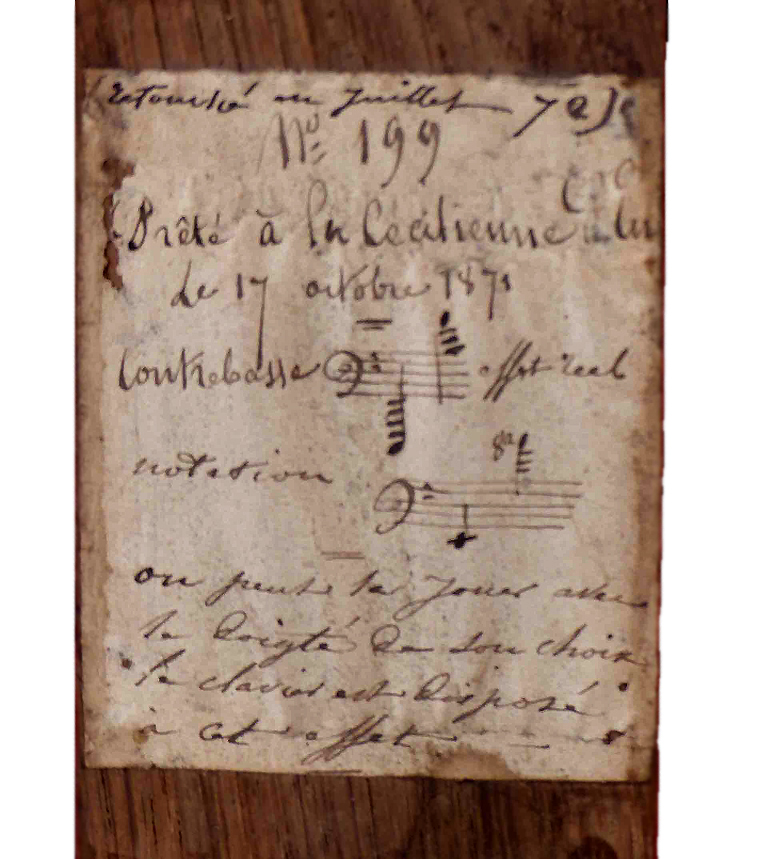 (Retouché en Juillet 72)
No 199
(Prêté à la Cécilienne
Le 17 octobre 1871
Contrebasse effet réel
8a
notation
on peut la jouer avec
le doigté de son choix
le clavier est disposé
à cet effet